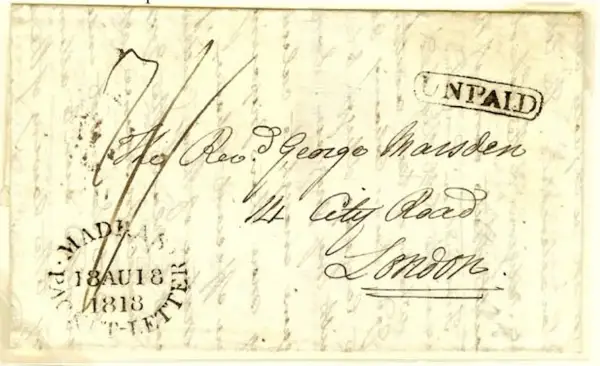 UNPAID
The Revd. George Marsden
14 City Road
London.
MADRAS
PACKET-LETTER
18AU18
1818